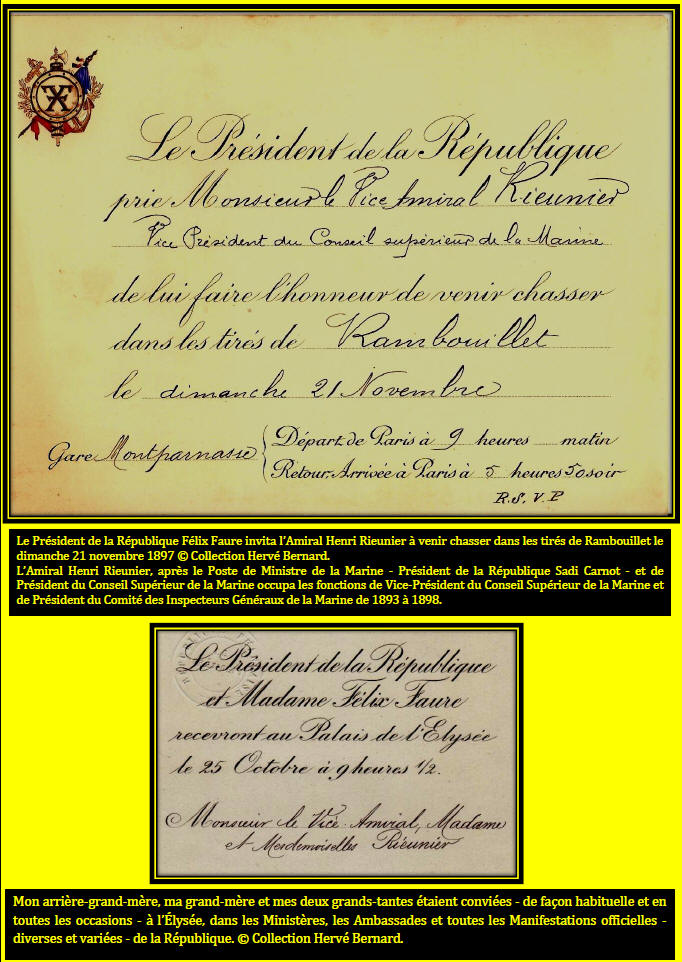 Le Président de la République
prie Monsieur le Vice Amiral Rieunier
Vice Président du Conseil supérieur de la Marine
de lui faire l'honneur de venir chasser
dans les tirés de Rambouillet
le dimanche 21 Novembre
Gare Montparnasse
Départ de Paris à 9 heures matin
Retour, Arrivée à Paris à 5 heures 50 soir
R.S.V.P
Le Président de la République Félix Faure invita l'Amiral Henri Rieunier à venir chasser dans les tirés de Rambouillet le
dimanche 21 novembre 1897 © Collection Hervé Bernard.
L'Amiral Henri Rieunier, après le Poste de Ministre de la Marine - Président de la République Sadi Carnot - et de
Président du Conseil Supérieur de la Marine occupa les fonctions de Vice-Président du Conseil Supérieur de la Marine et
de Président du Comité des Inspecteurs Généraux de la Marine de 1893 à 1898.
Le Président de la République
et Madame Félix Faure
recevront au Palais de l'Elysée
le 25 Octobre à 9 heures 1/2.
Monsieur le Vice-Amiral, Madame
et Mesdemoiselles Rieunier
Mon arrière-grand-mère, ma grand-mère et mes deux grands-tantes étaient conviées - de façon habituelle et en
toutes les occasions - à l'Élysée, dans les Ministères, les Ambassades et toutes les Manifestations officielles -
diverses et variées - de la République. © Collection Hervé Bernard.